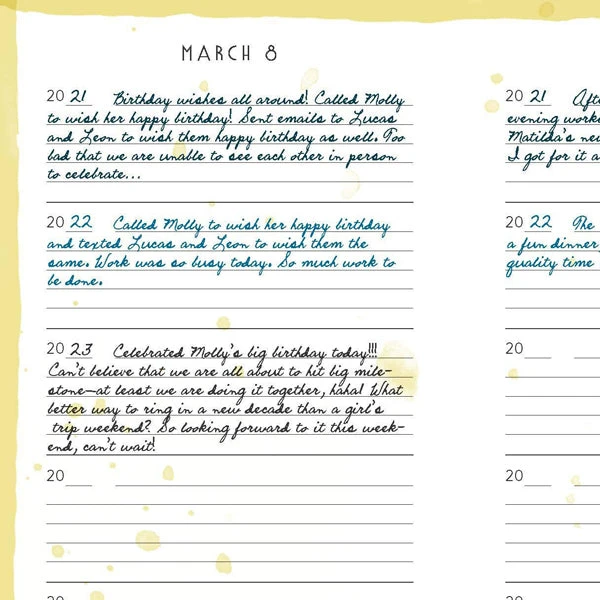 MARCH 8
20 21 Birthday wishes all around! Called Molly
to wish her happy birthday! Sent emails to Lucas
and Leon to wish them happy birthday as well. Too
bad that we are unable to see each other in person
to celebrate...
20 22 Called Molly to wish her happy birthday
and texted Lucas and Leon to wish them the
same. Work was so busy today. So much work to
be done.
20 23 Celebrated Molly's big birthday today!!!
Can't believe that we are all about to hit big mile-
stone—at least we are doing it together, haha! What
better way to ring in a new decade than a girl's
trip weekend? So looking forward to it this week-
end, can't wait!
20
20
20 21
evening
Matilda's
I got for it
20 22 The
a fun dinner
quality time
20
20